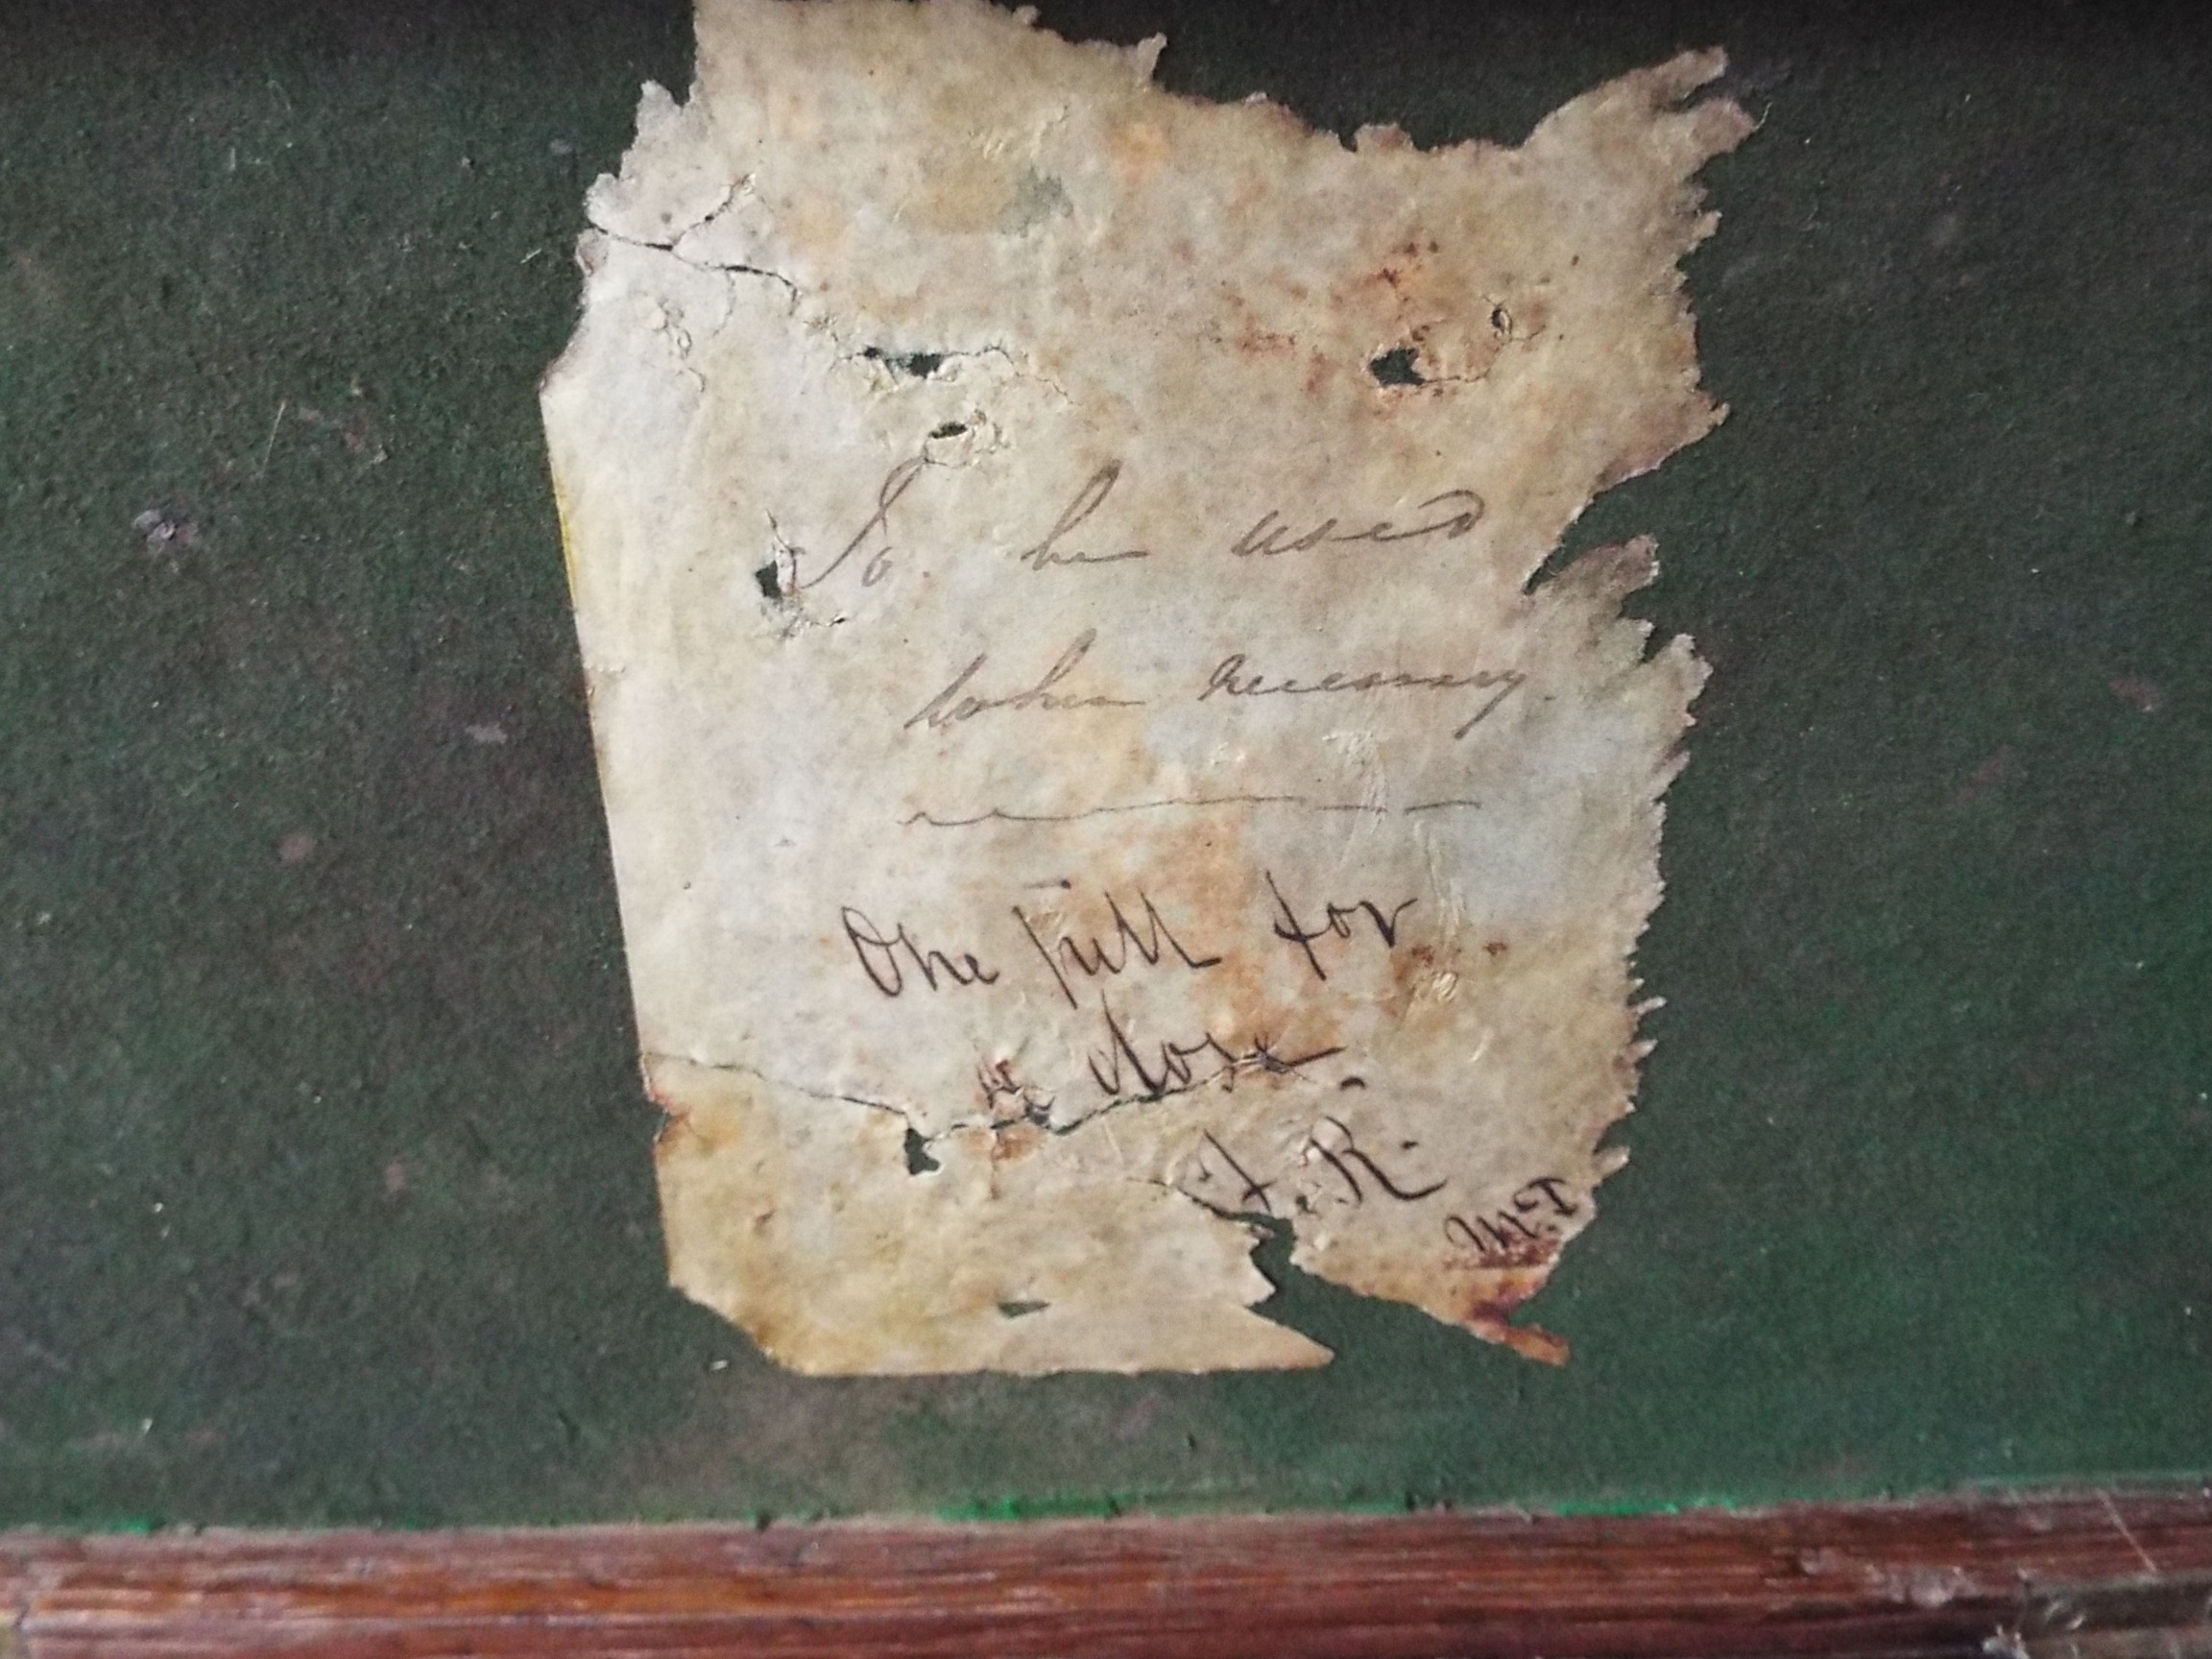 To be used
when necessary.
One pill for
a dose
F. R.